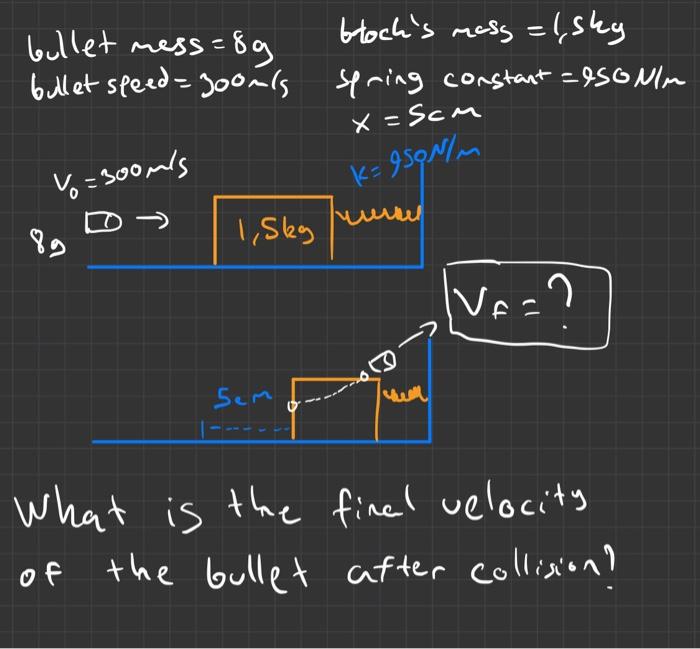 bullet mess = 8g
bullet speed = 300m/s
block's mass = 1,5kg
spring constant = 950N/m
x = 5cm
V₀ = 300m/s
K = 950N/m
8g
1,5kg
Vf = ?
5cm
What is the final velocity
of the bullet after collision?